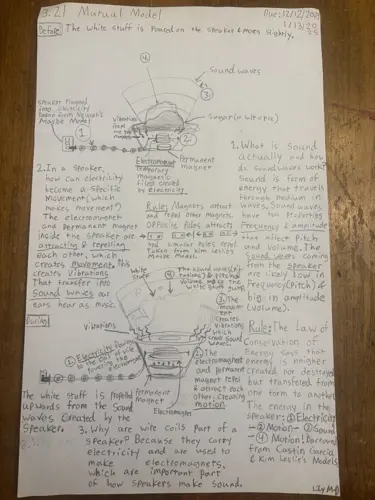 3.2.1 Mutual Model
Due: 12/12/20
1/13/20
25
Before
The white stuff is Poured on the speaker & moves slightly.
Sound waves
speaker Plugged
into electricity
Maybe Model
Vibrations
from the
Sugar (white stuff)
Electromagnet
temporary
magnetic
field created
by electricity
Permanent
magnet
2. In a speaker,
how can electricity
become a specific
movement (which
makes movement)?
The electromagnet
and permanent magnet
inside the speaker are
attracting & repelling
each other, which
creates movement. This
creates vibrations
That transfer into
sound waves our
ears hear as music.
Rule: Magnets attract
and repel other magnets.
Opposite Poles attract
and similar Poles repel.
Taken from Kim Leslie's
Maybe Model.
1. What is sound
actually and how
do sound waves work?
Sound is form of
energy that travels
through medium of
waves. Sound waves
have two properties
Frequency & amplitude
that affect Pitch
and volume. The
sound waves coming
from the speaker
are likely low in
frequency (Pitch) &
big in amplitude
(volume).
Rule: The Law of
Conservation of
Energy says that
energy is neither
created nor destroyed
but transfered from
one form to another.
The energy in the
speaker: ① Electrical
→ ② Motion → ③ Sound
→ ④ Motion! Borrowed
from Castin Garcia
& Kim Leslie's Models
During
White
stuff
④ The sound waves
volume make the
white stuff jump
③ The
movement
creates
vibrations
which
create sound
waves.
Vibrations
① Electricity flows
② The
electromagnet
and permanent
magnet repel
& attract each
other, creating
motion
Permanent
magnet
Electromagnet
The white stuff is Propelled
upwards from the sound
waves created by the
speaker.
3. Why are wire coils part of a
speaker? Because they carry
electricity and are used to
make electromagnets,
which are important part
of how speakers make sound.